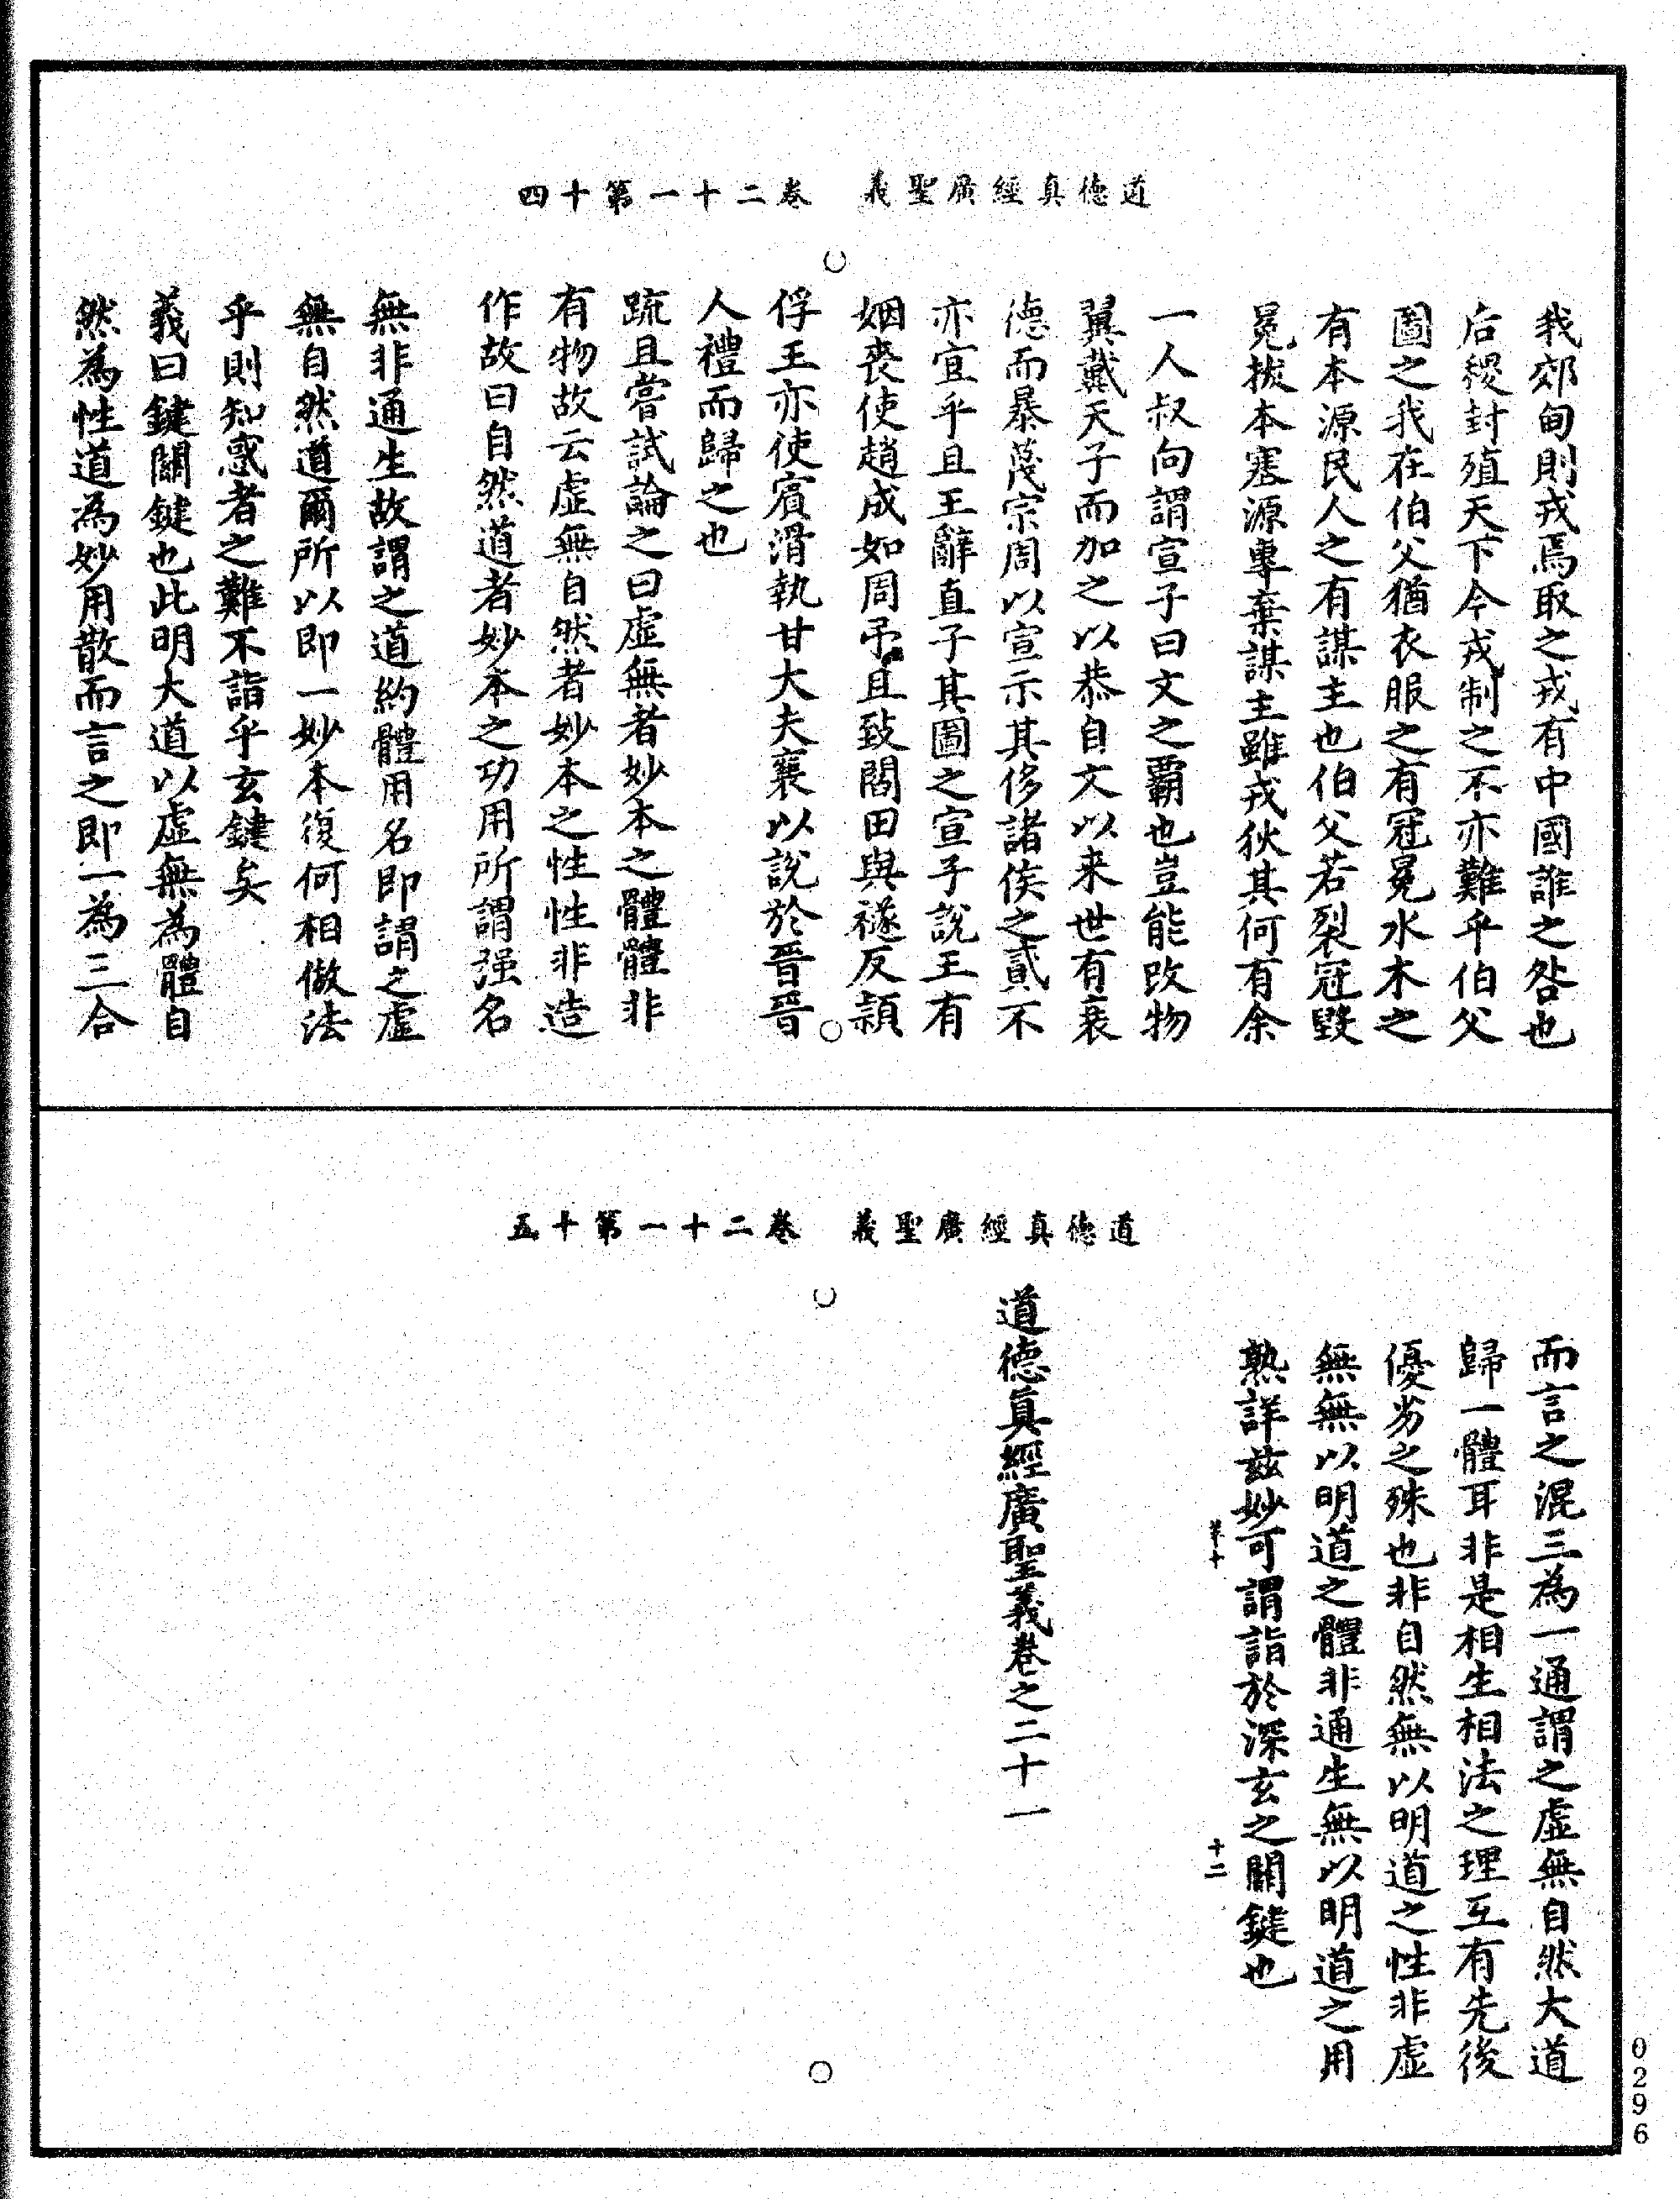 道德真經廣聖義　卷二十一第十四
我郊甸則戎焉取之戎有中國誰之咎也
后稷封殖天下今戎制之不亦難乎伯父
圖之我在伯父猶衣服之有冠冕水木之
有本源民人之有謀主也伯父若裂冠毀
冕拔本塞源專棄謀主雖戎狄其何有余
一人叔向謂宣子曰文之霸也豈能改物
翼戴天子而加之以恭自文以来世有衰
德而暴蔑宗周以宣示其侈諸侯之貳不
亦宜乎且王辭直子其圖之宣子說王有
姻喪使趙成如周弔且致閻田與襚反潁
俘王亦使賓滑執甘大夫襄以說於晉晉
人禮而歸之也
疏且嘗試論之曰虛無者妙本之體體非
有物故云虛無自然者妙本之性性非造
作故曰自然道者妙本之功用所謂强名
無非通生故謂之道約體用名即謂之虛
無自然道爾所以即一妙本復何相倣法
乎則知惑者之難不詣乎玄鍵矣
義曰鍵關鍵也此明大道以虛無為體自
然為性道為妙用散而言之即一為三合
道德真經廣聖義　卷二十一第十五
而言之混三為一通謂之虛無自然大道
歸一體耳非是相生相法之理互有先後
優劣之殊也非自然無以明道之性非虛
無無以明道之體非通生無以明道之用
熟詳茲妙可謂詣於深玄之關鍵也
草十
十二
道德真經廣聖義卷之二十一
0296